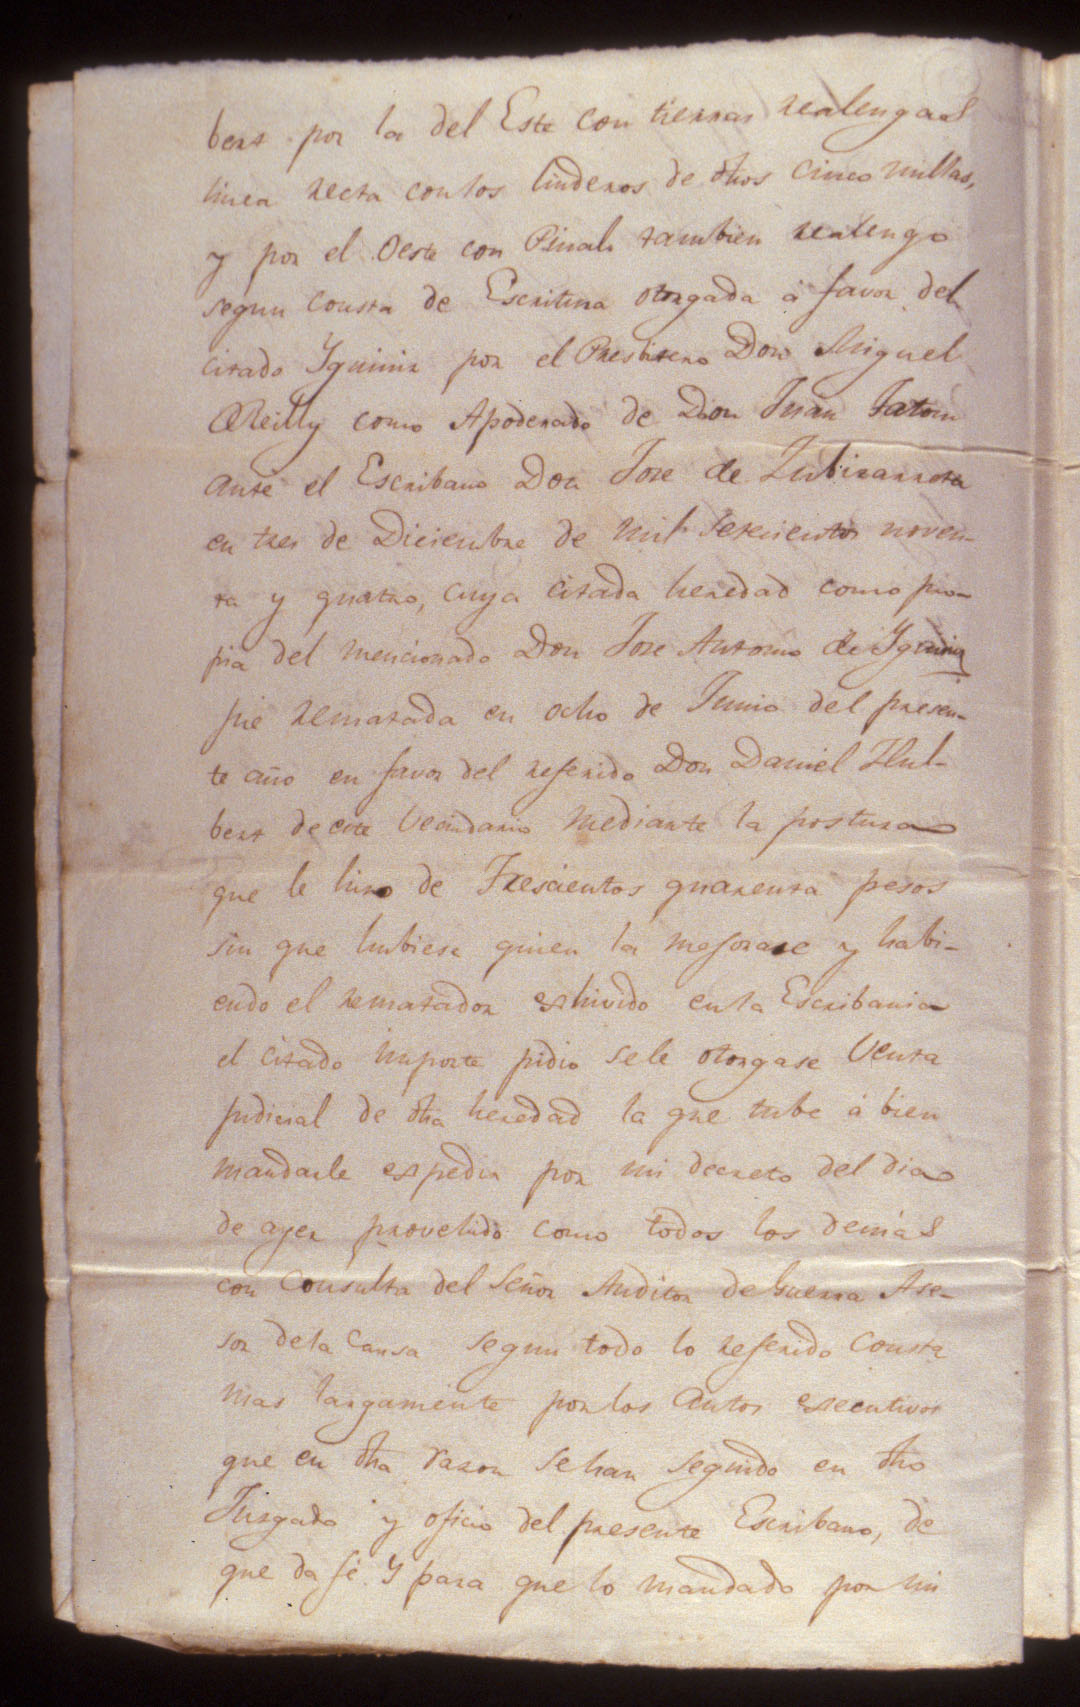 bert por la del Este con tierras realengas
linea recta con los linderos de dhos cinco millas,
y por el Oeste con Pinal tambien realengo
segun consta de Escritura otorgada á favor del
citado Yguiniz por el Presbitero Don Miguel
OReilly como Apoderado de Don Juan Tatom
ante el Escribano Don Jose de Zubizarreta
en tres de Diciembre de mil setecientos noven-
ta y quatro, cuya citada heredad como pro-
pia del mencionado Don Jose Antonio de Yguiniz
fue rematada en ocho de Junio del presen-
te año en favor del referido Don Daniel Hul-
bert de este Vecindario mediante la postura
que le hizo de Trescientos quarenta pesos
sin que hubiese quien la mejorase y habi-
endo el rematador exhivido en la Escribania
el citado importe pidio se le otorgase Venta
judicial de dha heredad la que tube á bien
mandarle espedir por mi decreto del dia
de ayer provehido como todos los demás
con Consulta del Señor Auditor de Guerra Ase-
sor de la Causa segun todo lo referido consta
mas largamente por los Autos executivos
que en dha razon se han seguido en dho
Juzgado y oficio del presente Escribano, de
que da fé. Y para que lo mandado por mi